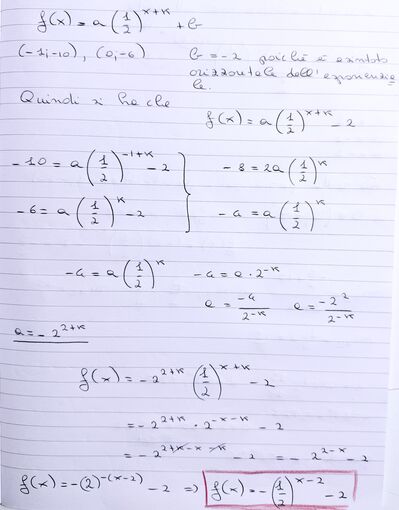 f(x) = a(1/2)^(x+k) + b
(-1;-10), (0,-6) b = -2 poiché è asintoto
orizzontale dell'esponenzia
le.
Quindi si ha che
f(x) = a(1/2)^(x+k) - 2
-10 = a(1/2)^(-1+k) - 2 -8 = 2a(1/2)^k
-6 = a(1/2)^k - 2 -4 = a(1/2)^k
-4 = a(1/2)^k -4 = a · 2^(-k)
a = -4/2^(-k) a = -2^2/2^(-k)
a = -2^(2+k)
f(x) = -2^(2+k) (1/2)^(x+k) - 2
= -2^(2+k) · 2^(-x-k) - 2
= -2^(2+k-x-k) - 2 = -2^(2-x) - 2
f(x) = -(2)^(-(x-2)) - 2 ⇒ f(x) = -(1/2)^(x-2) - 2